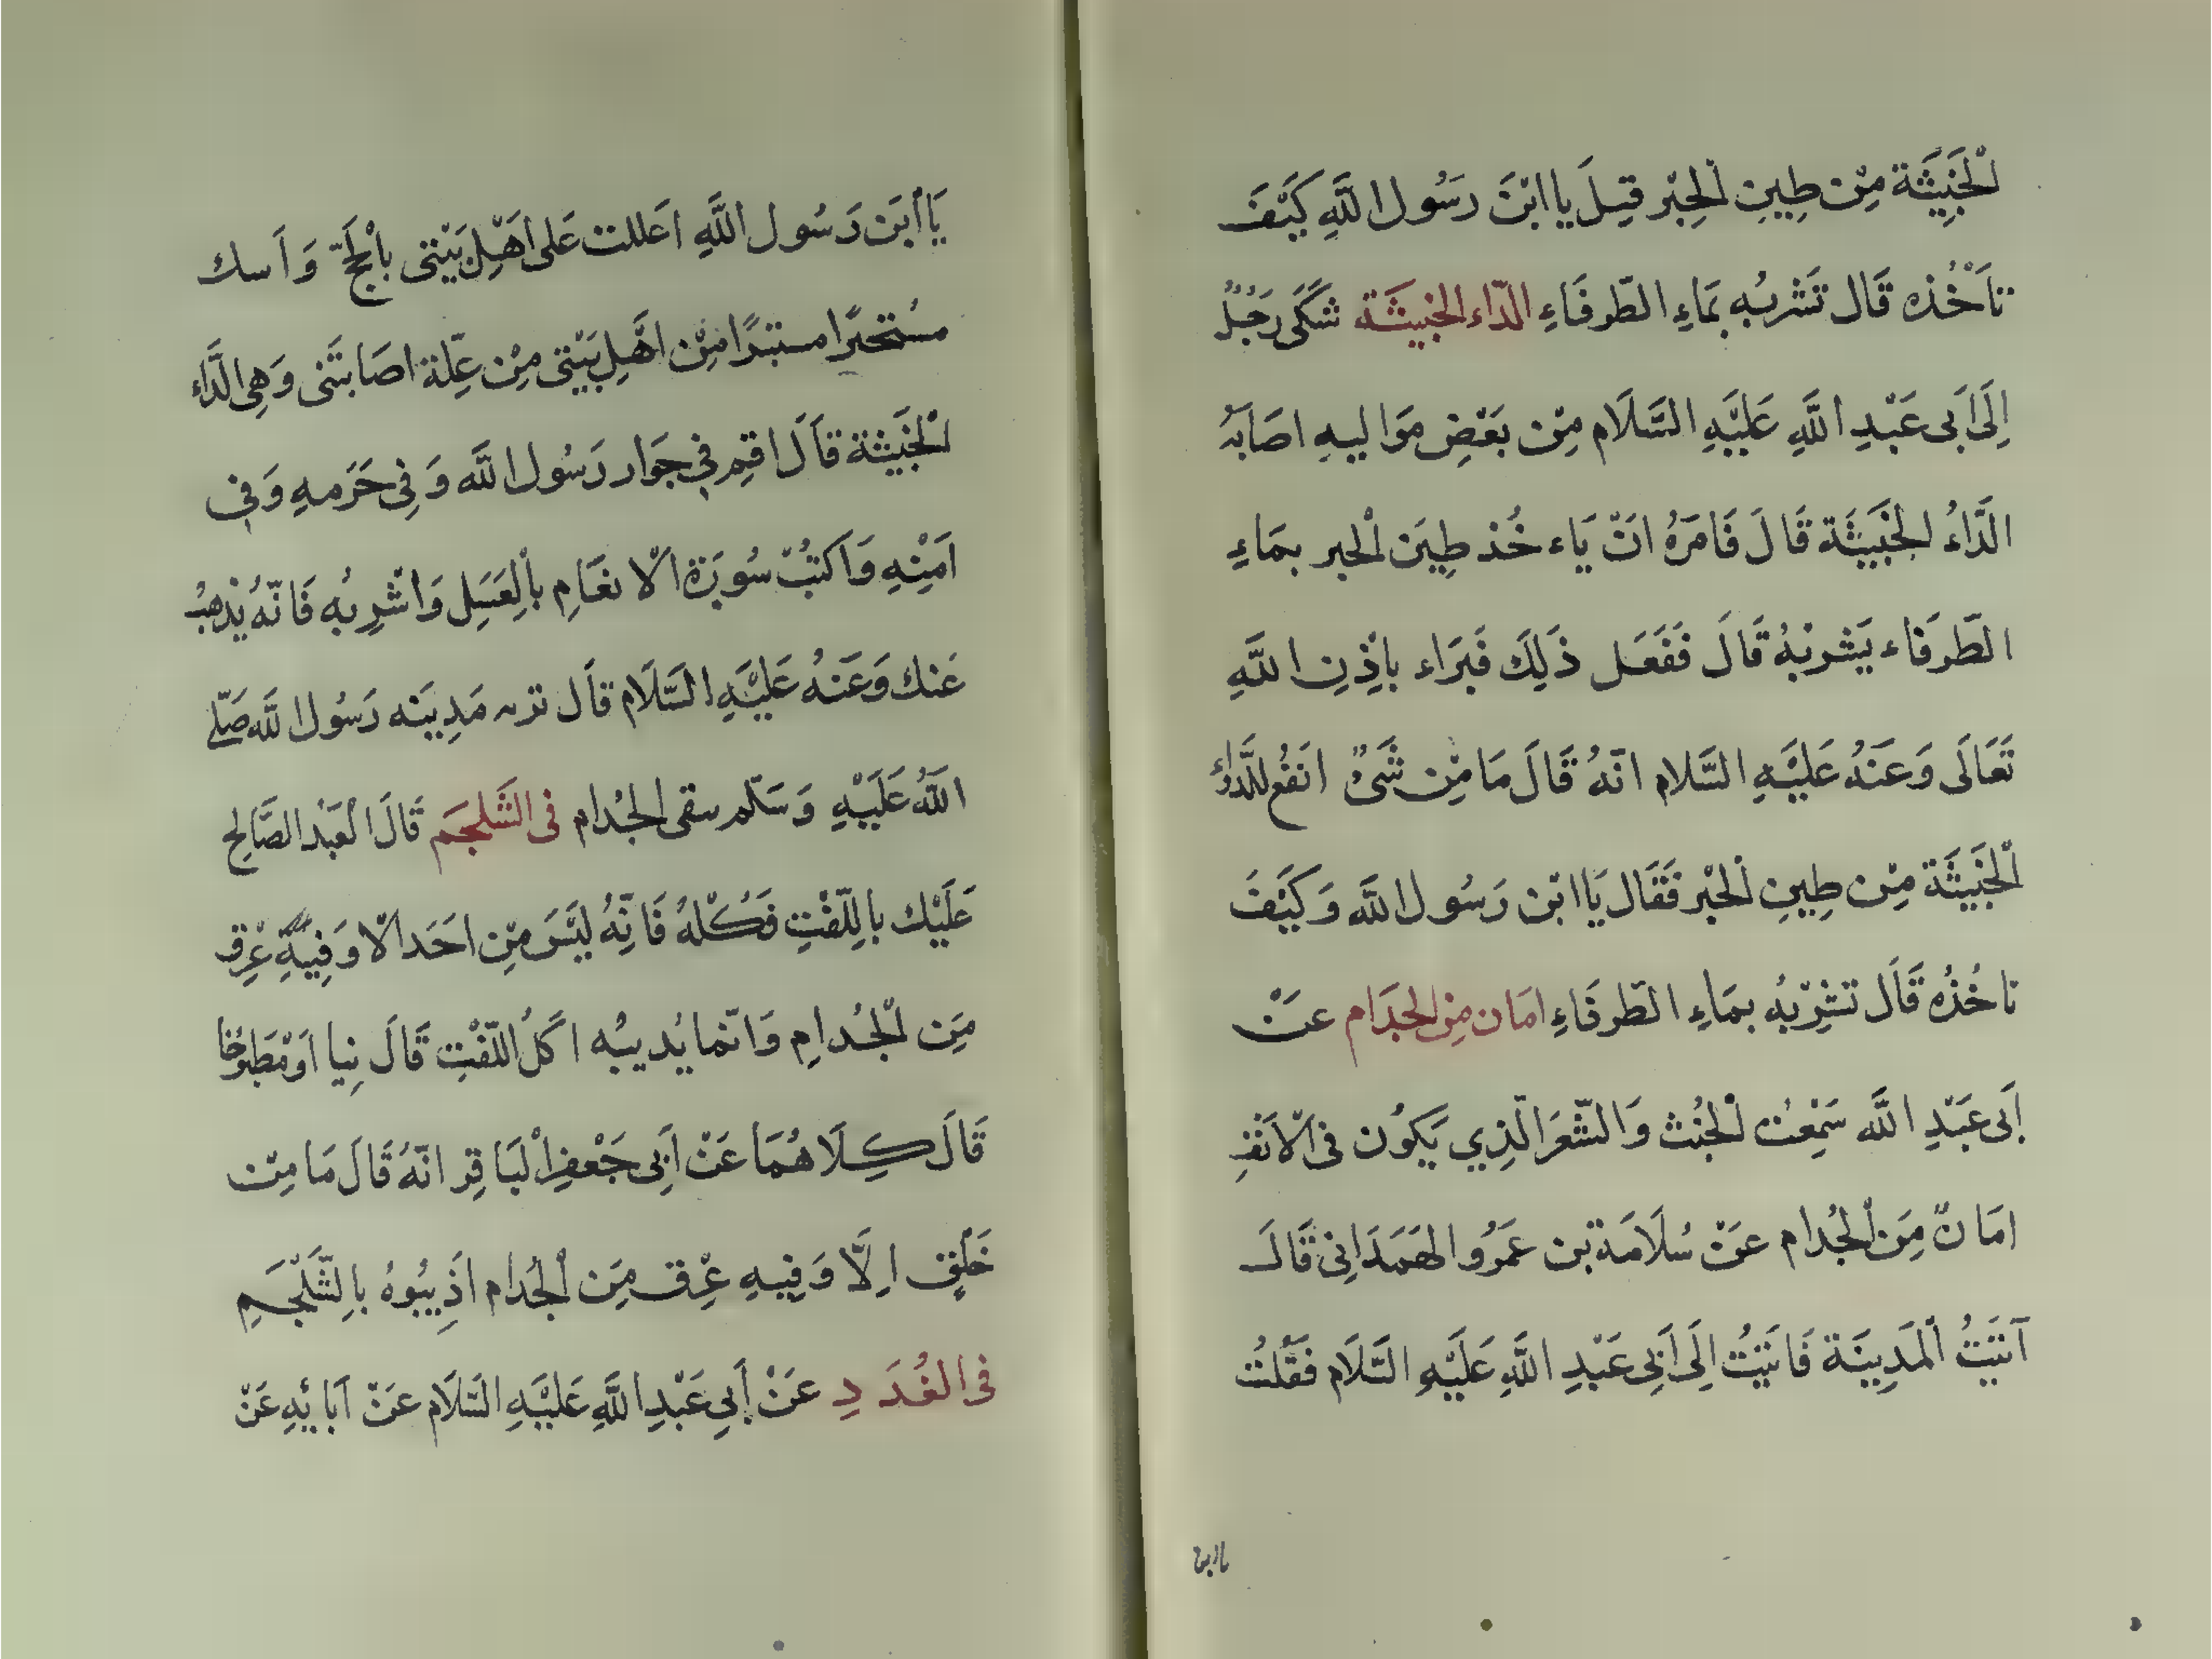 الْخَبِيثَة مِنْ طِينِ الْحِبْر قِيلَ يا ابْنَ رَسُول اللَّهِ كَيْفَ
تَاَخُذه قَال تَشْربُه بمَاءِ الطَّرفَاءِ الدّاء الخبيثَة شكَى رَجُلٌ
اِلَى اَبى عَبْدِ اللَّهِ عَلَيْهِ السَّلَام مِن بَعْضِ مَوَاليهِ اصَابَهُ
الدَّاءُ الخَبيثَة قَالَ فَامَرَهُ انّ يَاء خُذ طِيَن الْحبر بمَاءِ
الطَّرفَاء يَشربْهُ قَالَ فَفَعَل ذَلِكَ فَبَرَاء باِذِنِ اللَّهِ
تَعَالَى وَعَنهُ عَلَيْهِ السَّلام انّهُ قَالَ مَا مِّن شَىْءٌ انفَع للدَّاءِ
الْخَبِيثَة مِن طِينِ الْحبْر فَقَال يَا ابْن رَسُول اللَّه وَكَيْفَ
تاخُذُه قَال تشرِبهُ بمَاءِ الطَّرفَاءِ امَان مِن الجدَام عَنْ
اَبى عَبْدِ اللَّه سَمِعْت الْخُنث وَالشّعَر الّذِي يَكوُن فى الْاَنْفِ
امَانٌ مِنَ الْجُدام عَنْ سُلَامَة بن عَمرُو الهَمَدَانِى قَالَ
اَتيَتُ الْمَدِينَة فَاتيَتُ اِلَى اَبِى عَبْدِ اللَّهِ عَلَيْهِ السَّلَام فقَلُتُ
يا ابن
يَا أبَن رَسُول اللَّهِ اعَللت عَلى اَهْلِ بَيْتى بِالْحَجّ وَاَسك
مسُتحبرًا مستبرًا مِنْ اهَلِ بَيْتى مِنْ عِلّة اصَابَتَنى وَهِى الدَّاء
الْخَبيثَة قَالَ اقِم فى جَوَار رَسُول اللَّه وَفِى حَرَمهِ وَفى
اَمَنِهِ وَاَكتُبْ سُورَة الْانعَامِ بالِعَسَلِ وَاشْرِبُه فَانّهُ يُذهبُ
عَنك وَعَنهُ عَلَيْهِ السَّلَام قَال تربه مَدِينَه رَسُول اللَّه صَلّى
اللَّهُ عَلَيْهِ وَسَلّم سقى الجُدام فى الشَلجَم قَالَ الْعَبْد الصَّالِح
عَلَيْك باللِّفْتِ فَكُلْهُ فَانِّهُ ليَسَ مِن احَد الْا وَفِيهِ عِرْق
مِن الْجُدامِ وَانّما يُديبُه اكَلُ اللّفْتِ قَالَ نِيا اَوْ مَطبُوخًا
قَالَ كِلَا هُمَا عَنْ اَبِى جَعْفر الْبَاقِر انّهُ قَالَ مَا مِنْ
خَلْقٍ اِلَّا وَفِيهِ عِرْق مِنَ الْجُدام اَذِيبُوهُ بالِشَلْجَمِ
فى الغُدَدِ عَنْ اَبِى عَبْدِ اللَّهِ عَلَيْهِ السَّلَام عَنْ اَبائِهِ عَنْ